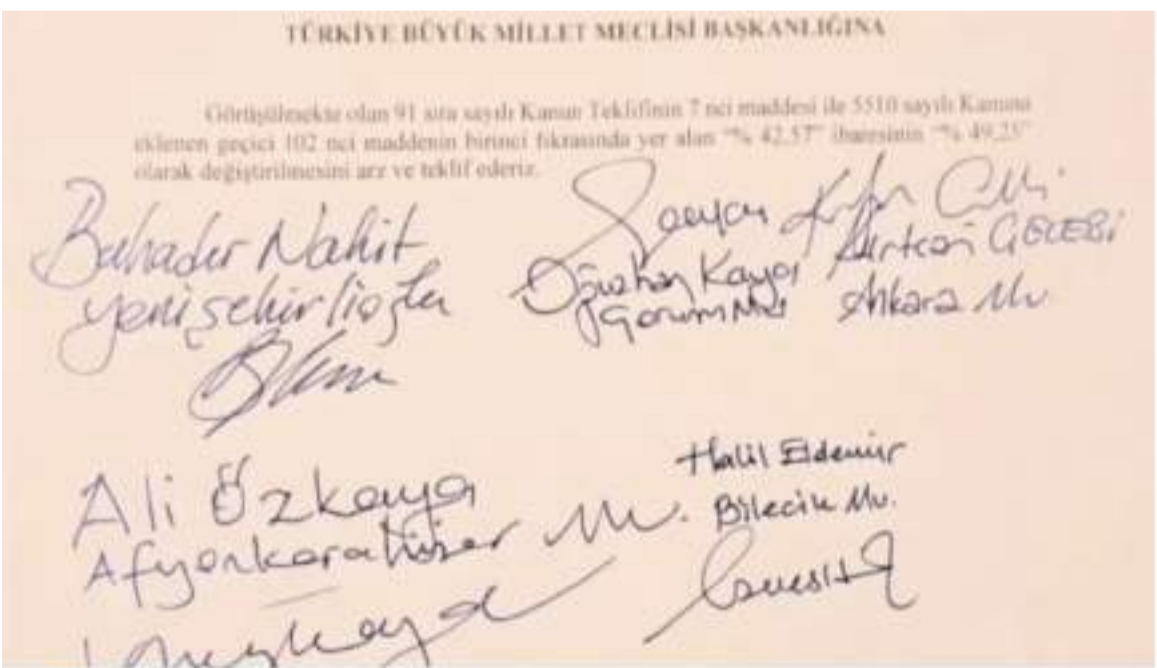 TÜRKİYE BÜYÜK MİLLET MECLİSİ BAŞKANLIĞINA
Görüşülmekte olan 91 sıra sayılı Kanun Teklifinin 7 nci maddesi ile 5510 sayılı Kanuna
eklenen geçici 102 nci maddenin birinci fıkrasında yer alan "% 42,57" ibaresinin "% 49,25"
olarak değiştirilmesini arz ve teklif ederiz.
Bahadır Nahit
Yenişehirlioğlu
Oğuzhan Kaya
Çorum Mv
ÇELEBİ
Ankara Mv.
Ali Özkaya
Afyonkarahisar Mv.
Halil Eldemir
Bilecik Mv.